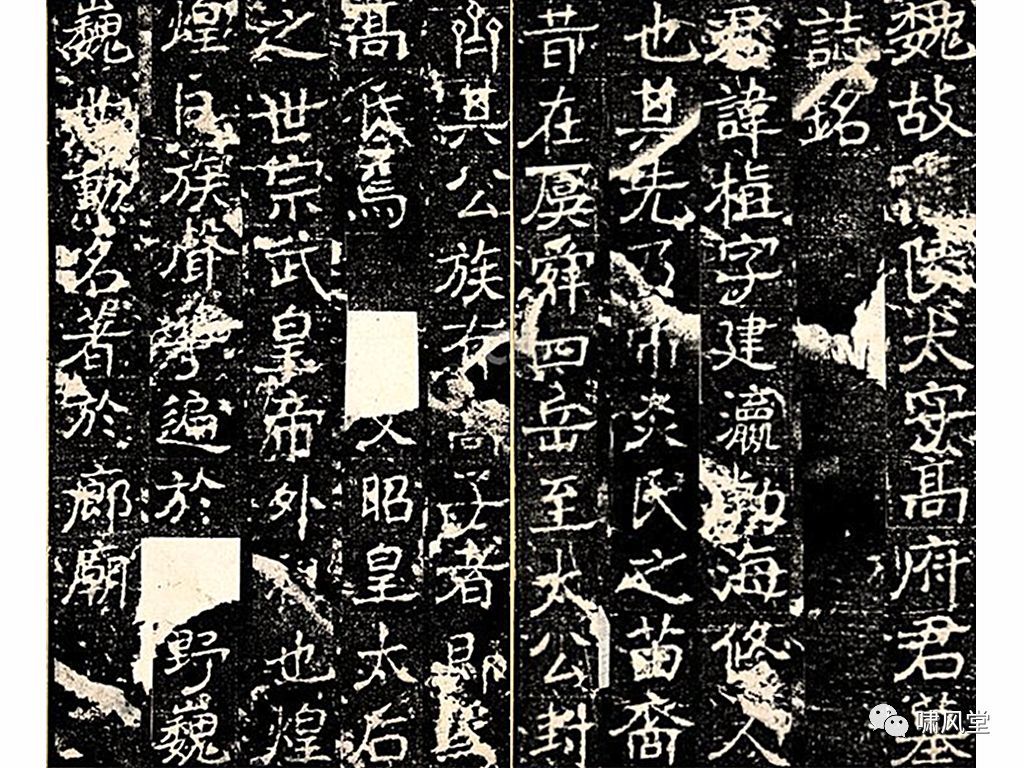 魏故濟陰太守高府君墓
誌銘
君諱植字建瀛勃海脩人
也其先乃帝炎氏之苗裔
昔在虞舜四岳至太公封
齊其公族有高子者即為
高氏焉 文昭皇太后
之世宗武皇帝外 也煌
煌冑族聲華遍於 野巍
巍 勳名著於廊廟
啸风堂